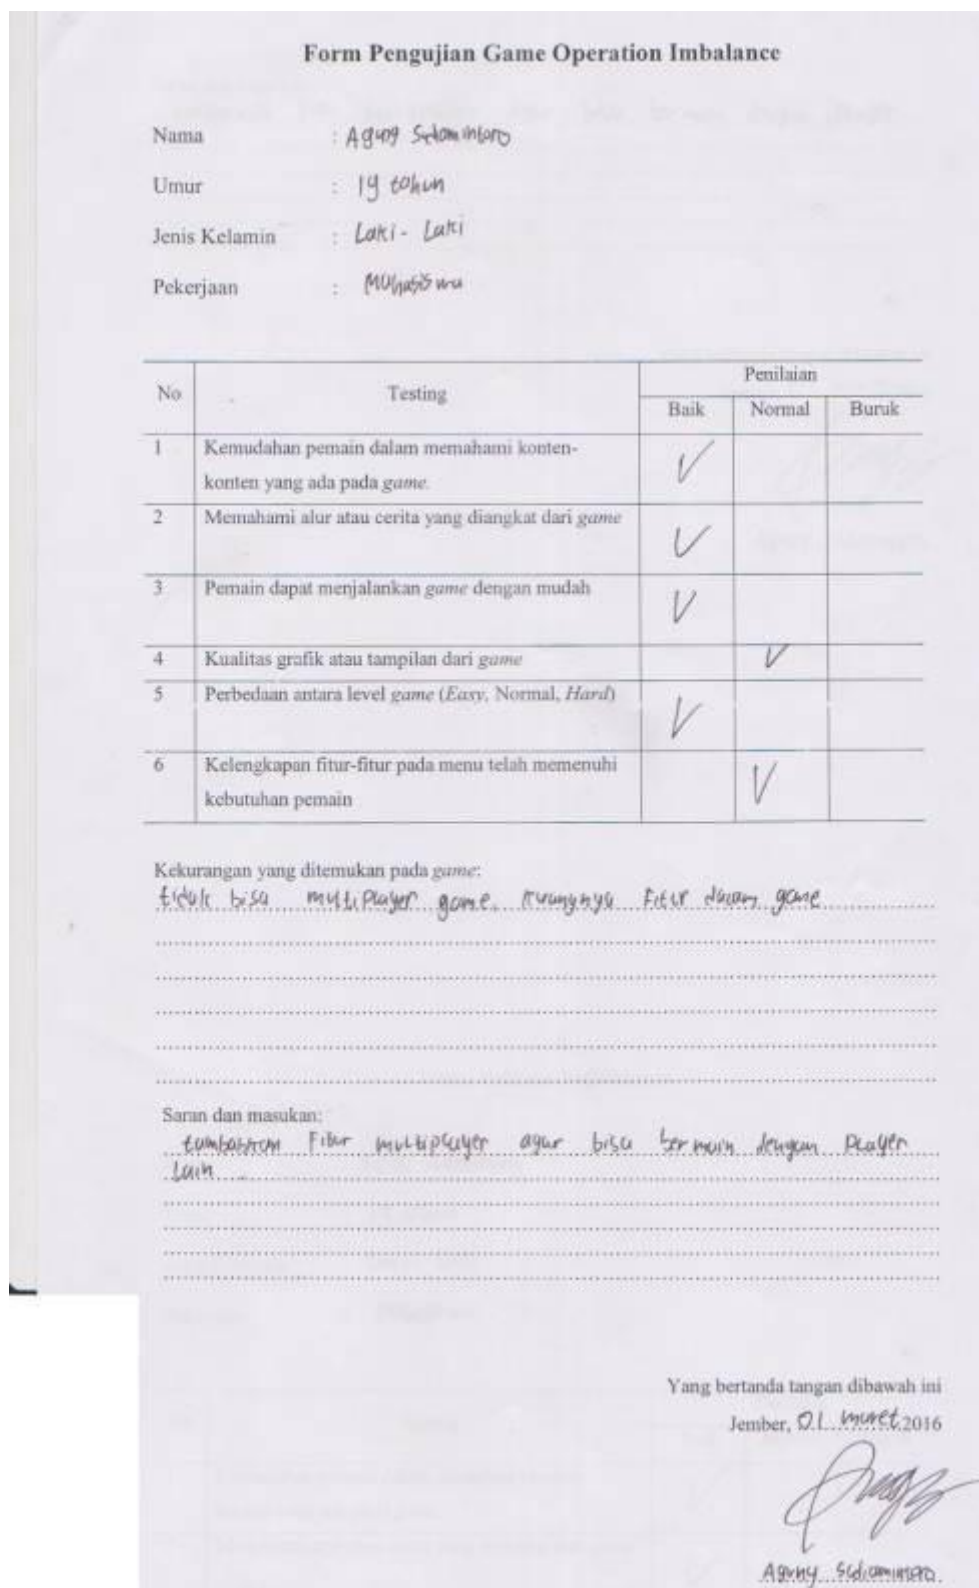 Form Pengujian Game Operation Imbalance
Nama : Agung
Umur : 19 tahun
Jenis Kelamin : Laki - Laki
Pekerjaan : Mahasiswa
No Testing Penilaian
Baik Normal Buruk
1 Kemudahan pemain dalam memahami konten-
konten yang ada pada game.
2 Memahami alur atau cerita yang diangkat dari game
3 Pemain dapat menjalankan game dengan mudah
4 Kualitas grafik atau tampilan dari game
5 Perbedaan antara level game (Easy, Normal, Hard)
6 Kelengkapan fitur-fitur pada menu telah memenuhi
kebutuhan pemain
Kekurangan yang ditemukan pada game:
tidak bisa multiplayer game. kurangnya Fitur dalam game
Saran dan masukan:
tambahkan Fitur multiplayer agar bisa bermain dengan Player
Lain
Yang bertanda tangan dibawah ini
Jember, 01 maret 2016
Agung